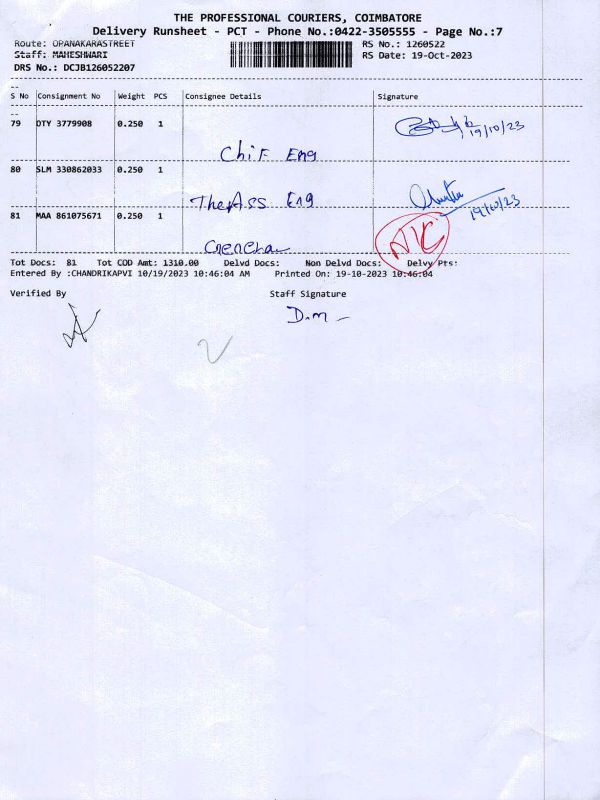 THE PROFESSIONAL COURIERS, COIMBATORE
Delivery Runsheet - PCT - Phone No.:0422-3505555 - Page No.:7
Route: OPANAKARASTREET RS No.: 1260522
Staff: MAHESHWARI RS Date: 19-Oct-2023
DRS No.: DCJB126052207
S No Consignment No Weight PCS Consignee Details Signature
79 OTY 3779908 0.250 1
19/10/23
Chif Eng
80 SLM 330862033 0.250 1
19/10/23
The Ass Eng
81 MAA 861075671 0.250 1
Tot Docs: 81 Tot COD Amt: 1310.00 Delvd Docs: Non Delvd Docs: Delvy Pts:
Entered By :CHANDRIKAPVI 10/19/2023 10:46:04 AM Printed On: 19-10-2023 10:46:04
Verified By Staff Signature
D.M -